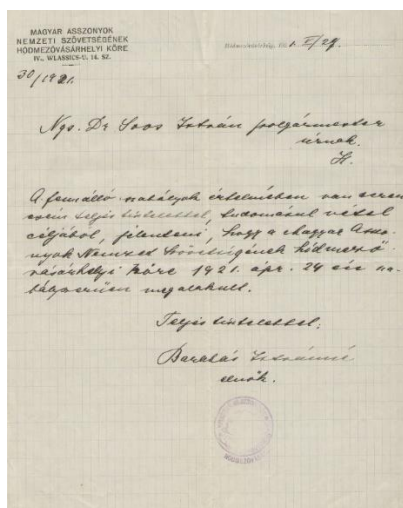 MAGYAR ASSZONYOK
NEMZETI SZÖVETSÉGÉNEK
HÓDMEZŐVÁSÁRHELYI KÖRE
IV., WLASSICS-U. 14. SZ.
Hódmezővásárhely, 192 1. V/27.
30/1921.
Ngs. Dr Soos István polgármester
úrnak.
H.
A fennálló szabályok értelmében van szeren
csém teljes tisztelettel, tudomásul vétel
céljából, jelenteni, hogy a Magyar Asszo-
nyok Nemzeti Szövetségének hódmező
vásárhelyi köre 1921. ápr. 24 én sza-
bályszerűen megalakult.
Teljes tisztelettel:
Barabás Istvánné
elnök.